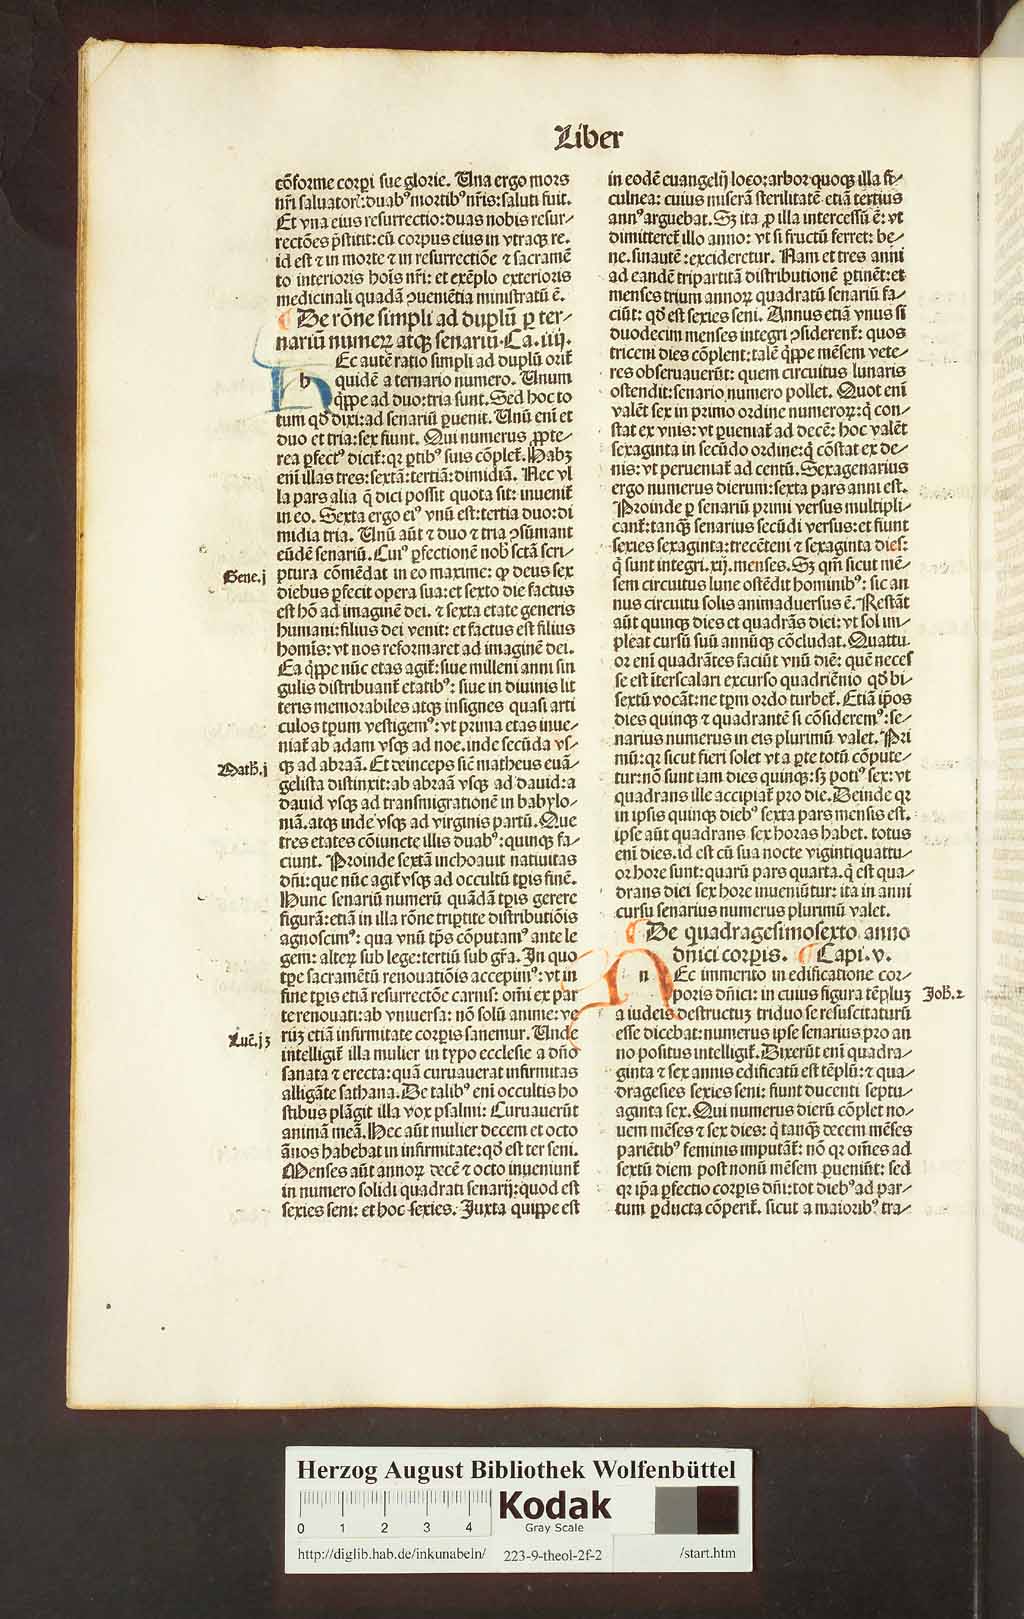 Liber
cōforme corpi sue glorie. Una ergo mors
nr̄i saluatoris: duabꝰ mortibꝰ nr̄is: saluti fuit.
Et vna eius resurrectio: duas nobis resur⸗
rectōes p̄stitit: cū corpus eius in vtraqꝫ re.
id est ⁊ in morte ⁊ in resurrectiōe ⁊ sacramē
to interioris hoīs nr̄i: et exēplo exterioris
medicinali quadā ꝯueniētia ministratū ē.
¶ De rōne simpli ad duplū ꝑ ter⸗
nariū numeꝝ atqꝫ senariū. Ca. iiij.
h
Ec autē ratio simpli ad duplū orit̄
quidē a ternario numero. Unum
q̄ppe ad duo: tria sunt. Sed hoc to
tum qd̄ dixi: ad senariū ꝑuenit. Unū eni et
duo et tria: sex fiunt. Qui numerus ꝓpte⸗
rea ꝑfectꝰ dicit̄: qꝛ ꝑtibꝰ suis cōplet̄. Habꝫ
eni illas tres: sextā: tertiā: dimidiā. Nec vl
la pars alia q̄ dici possit quota sit: inuenit̄
in eo. Sexta ergo eiꝰ vnū est: tertia duo: di
midia tria. Unū aūt ⁊ duo ⁊ tria ꝯsūmant
eūdē senariū. Cuiꝰ ꝑfectionē nob̄ sctā scri⸗
Gene. j
ptura cōmēdat in eo maxime: ꝙ deus sex
diebus ꝑfecit opera sua: et sexto die factus
est hō ad imaginē dei. ⁊ sexta etate generis
humani: filius dei venit: et factus est filius
homīs: vt nos reformaret ad imaginē dei.
Ea q̄ppe nūc etas agit̄: siue milleni anni sin
gulis distribuant̄ etatibꝰ: siue in diuinis lit
teris memorabiles atqꝫ insignes quasi arti
culos tpum vestigemꝰ: vt prima etas inue⸗
niat̄ ab adam vsqꝫ ad noe. inde secūda vs⸗
Math. j
qꝫ ad abraā. Et deinceps sic̄ matheus euā⸗
gelista distinxit: ab abraā vsqꝫ ad dauid: a
dauid vsqꝫ ad transmigrationē in babylo⸗
niā. atqꝫ inde vsqꝫ ad virginis partū. Que
tres etates cōiuncte illis duabꝰ: quinqꝫ fa⸗
ciunt. Proinde sextā inchoauit natiuitas
dn̄i: que nūc agit̄ vsqꝫ ad occultū tpis finē.
Hunc senariū numerū quādā tpis gerere
figurā: etiā in illa rōne triptite distributiōis
agnoscimꝰ: qua vnū tps cōputamꝰ ante le
gem: alteꝝ sub lege: tertiū sub gr̄a. In quo
tpe sacramētū renouatiōis accepimꝰ: vt in
fine tpis etiā resurrectōe carnis: om̄i ex par
te renouati: ab vniuersa: nō solū anime: ve
Luc̄. j3
rūꝫ etiā infirmitate corpis sanemur. Unde
intelligit̄ illa mulier in typo ecclesie a dn̄o
sanata ⁊ erecta: quā curuauerat infirmitas
alligāte sathana. De talibꝰ eni occultis ho
stibus plāgit illa vox psalmi: Curuauerūt
animā meā. Hec aūt mulier decem et octo
ānos habebat in infirmitate: qd̄ est ter seni.
Menses aūt annoꝝ decē ⁊ octo inueniunt̄
in numero solidi quadrati senarij: quod est
sexies seni: et hoc sexies. Juxta quippe est
in eodē euangelij loco: arbor quoqꝫ illa fi⸗
culnea: cuius miserā sterilitatē etiā tertius
annꝰ arguebat. Sꝫ ita ꝓ illa intercessū ē: vt
dimitteret̄ illo anno: vt si fructū ferret: be⸗
ne. sin autē: excideretur. Nam et tres anni
ad eandē tripartitā distributionē ꝑtinēt: et
menses trium annoꝝ quadratū senariū fa⸗
ciūt: qd̄ est sexies seni. Annus etiā vnus si
duodecim menses integri ꝯsiderent̄: quos
triceni dies cōplent: talē q̄ppe mēsem vete⸗
res obseruauerūt: quem circuitus lunaris
ostendit: senario numero pollet. Quot eni
valēt sex in primo ordine numeroꝝ: q̄ con⸗
stat ex vnis: vt ꝑueniat̄ ad decē: hoc valēt
sexaginta in secūdo ordine: q̄ cōstat ex de⸗
nis: vt perueniat̄ ad centū. Sexagenarius
ergo numerus dierum: sexta pars anni est.
Proinde ꝑ senariū primi versus multipli⸗
cant̄: tanqꝫ senarius secūdi versus: et fiunt
sexies sexaginta: trecēteni ⁊ sexaginta dies:
q̄ sunt integri. xij. menses. Sꝫ qm̄ sicut mē⸗
sem circuitus lune ostēdit hominibꝰ: sic an
nus circuitu solis animaduersus ē. Restāt
aūt quinqꝫ dies et quadrās diei: vt sol im⸗
pleat cursū suū annūqꝫ cōcludat. Quattu⸗
or eni quadrātes faciūt vnū diē: quē necef
se est īterscalari excurso quadriēnio qd̄ bi⸗
sextū vocāt: ne tpm ordo turbet̄. Etiā ip̄os
dies quinqꝫ ⁊ quadrantē si cōsideremꝰ: se⸗
narius numerus in eis plurimū valet. Pri
mū: qꝛ sicut fieri solet vt a ꝑte totū cōpute⸗
tur: nō sunt iam dies quinqꝫ: sꝫ potiꝰ sex: vt
quadrans ille accipiat̄ pro die. Deinde qꝛ
in ipsis quinqꝫ diebꝰ sexta pars mensis est.
ipse aūt quadrans sex horas habet. totus
eni dies. id est cū sua nocte vigintiquattu⸗
or hore sunt: quarū pars quarta. q̄ est qua⸗
drans diei sex hore inueniūtur: ita in anni
cursu senarius numerus plurimū valet.
¶ De quadragesimosexto anno
dnīci corpis. ¶ Capi. v.
n
Ec immerito in edificatione cor⸗
Joh̄. 2
poris dn̄ici: in cuius figura tēpluꝫ
a iudeis destructuꝫ triduo se resuscitaturū
esse dicebat: numerus ipse senarius pro an
no positus intelligit̄. Dixerūt eni quadra⸗
ginta ⁊ sex annis edificatū est tēplū: ⁊ qua⸗
dragesies sexies seni: fiunt ducenti septu⸗
aginta sex. Qui numerus dierū cōplet no⸗
uem mēses ⁊ sex dies: q̄ tanqꝫ decem mēses
pariētibꝰ feminis imputāt̄: nō qꝛ om̄es ad
sextū diem post nonū mēsem ꝑueniūt: sed
qꝛ ip̄a ꝑfectio corpis dn̄i: tot diebꝰ ad par⸗
tum ꝑducta cōperit̄. sicut a maioribꝰ tra⸗
Herzog August Bibliothek Wolfenbüttel
Kodak
Gray Scale
0 1 2 3 4
http://diglib.hab.de/inkunabeln/ 223-9-theol-2f-2 /start.htm